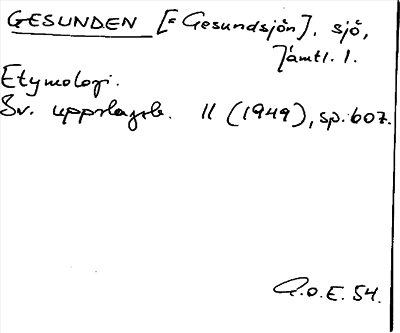 GESUNDEN [= Gesundsjön], sjö,
Jämtl. l.
Etymologi.
Sv. uppslagsb. 11 (1949), sp. 607.
R.o.E. 54.